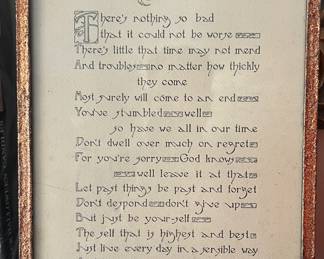 There's nothing so bad
that it could not be worse
There's little that time may not mend
And troubles no matter how thickly
they come
Most surely will come to an end
You've stumbled well
so have we all in our time
Don't dwell over much on regret
For you're sorry God knows
well leave it at that
Let past things be past and forget
Don't despond don't give up
But just be your-self
The self that is highest and best
Just live every day in a sensible way